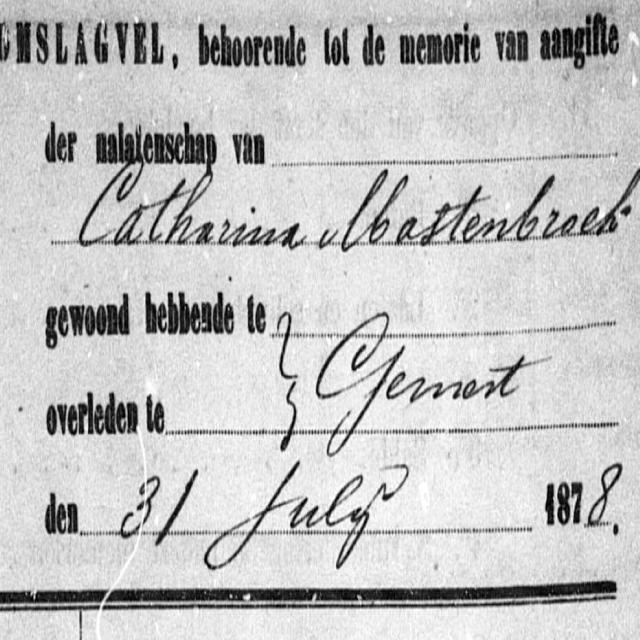 OMSLAGVEL, behoorende tot de memorie van aangifte
der nalatenschap van
Catharina Mastenbroek
gewoond hebbende te
Gemert
overleden te
den 31 July 1878.